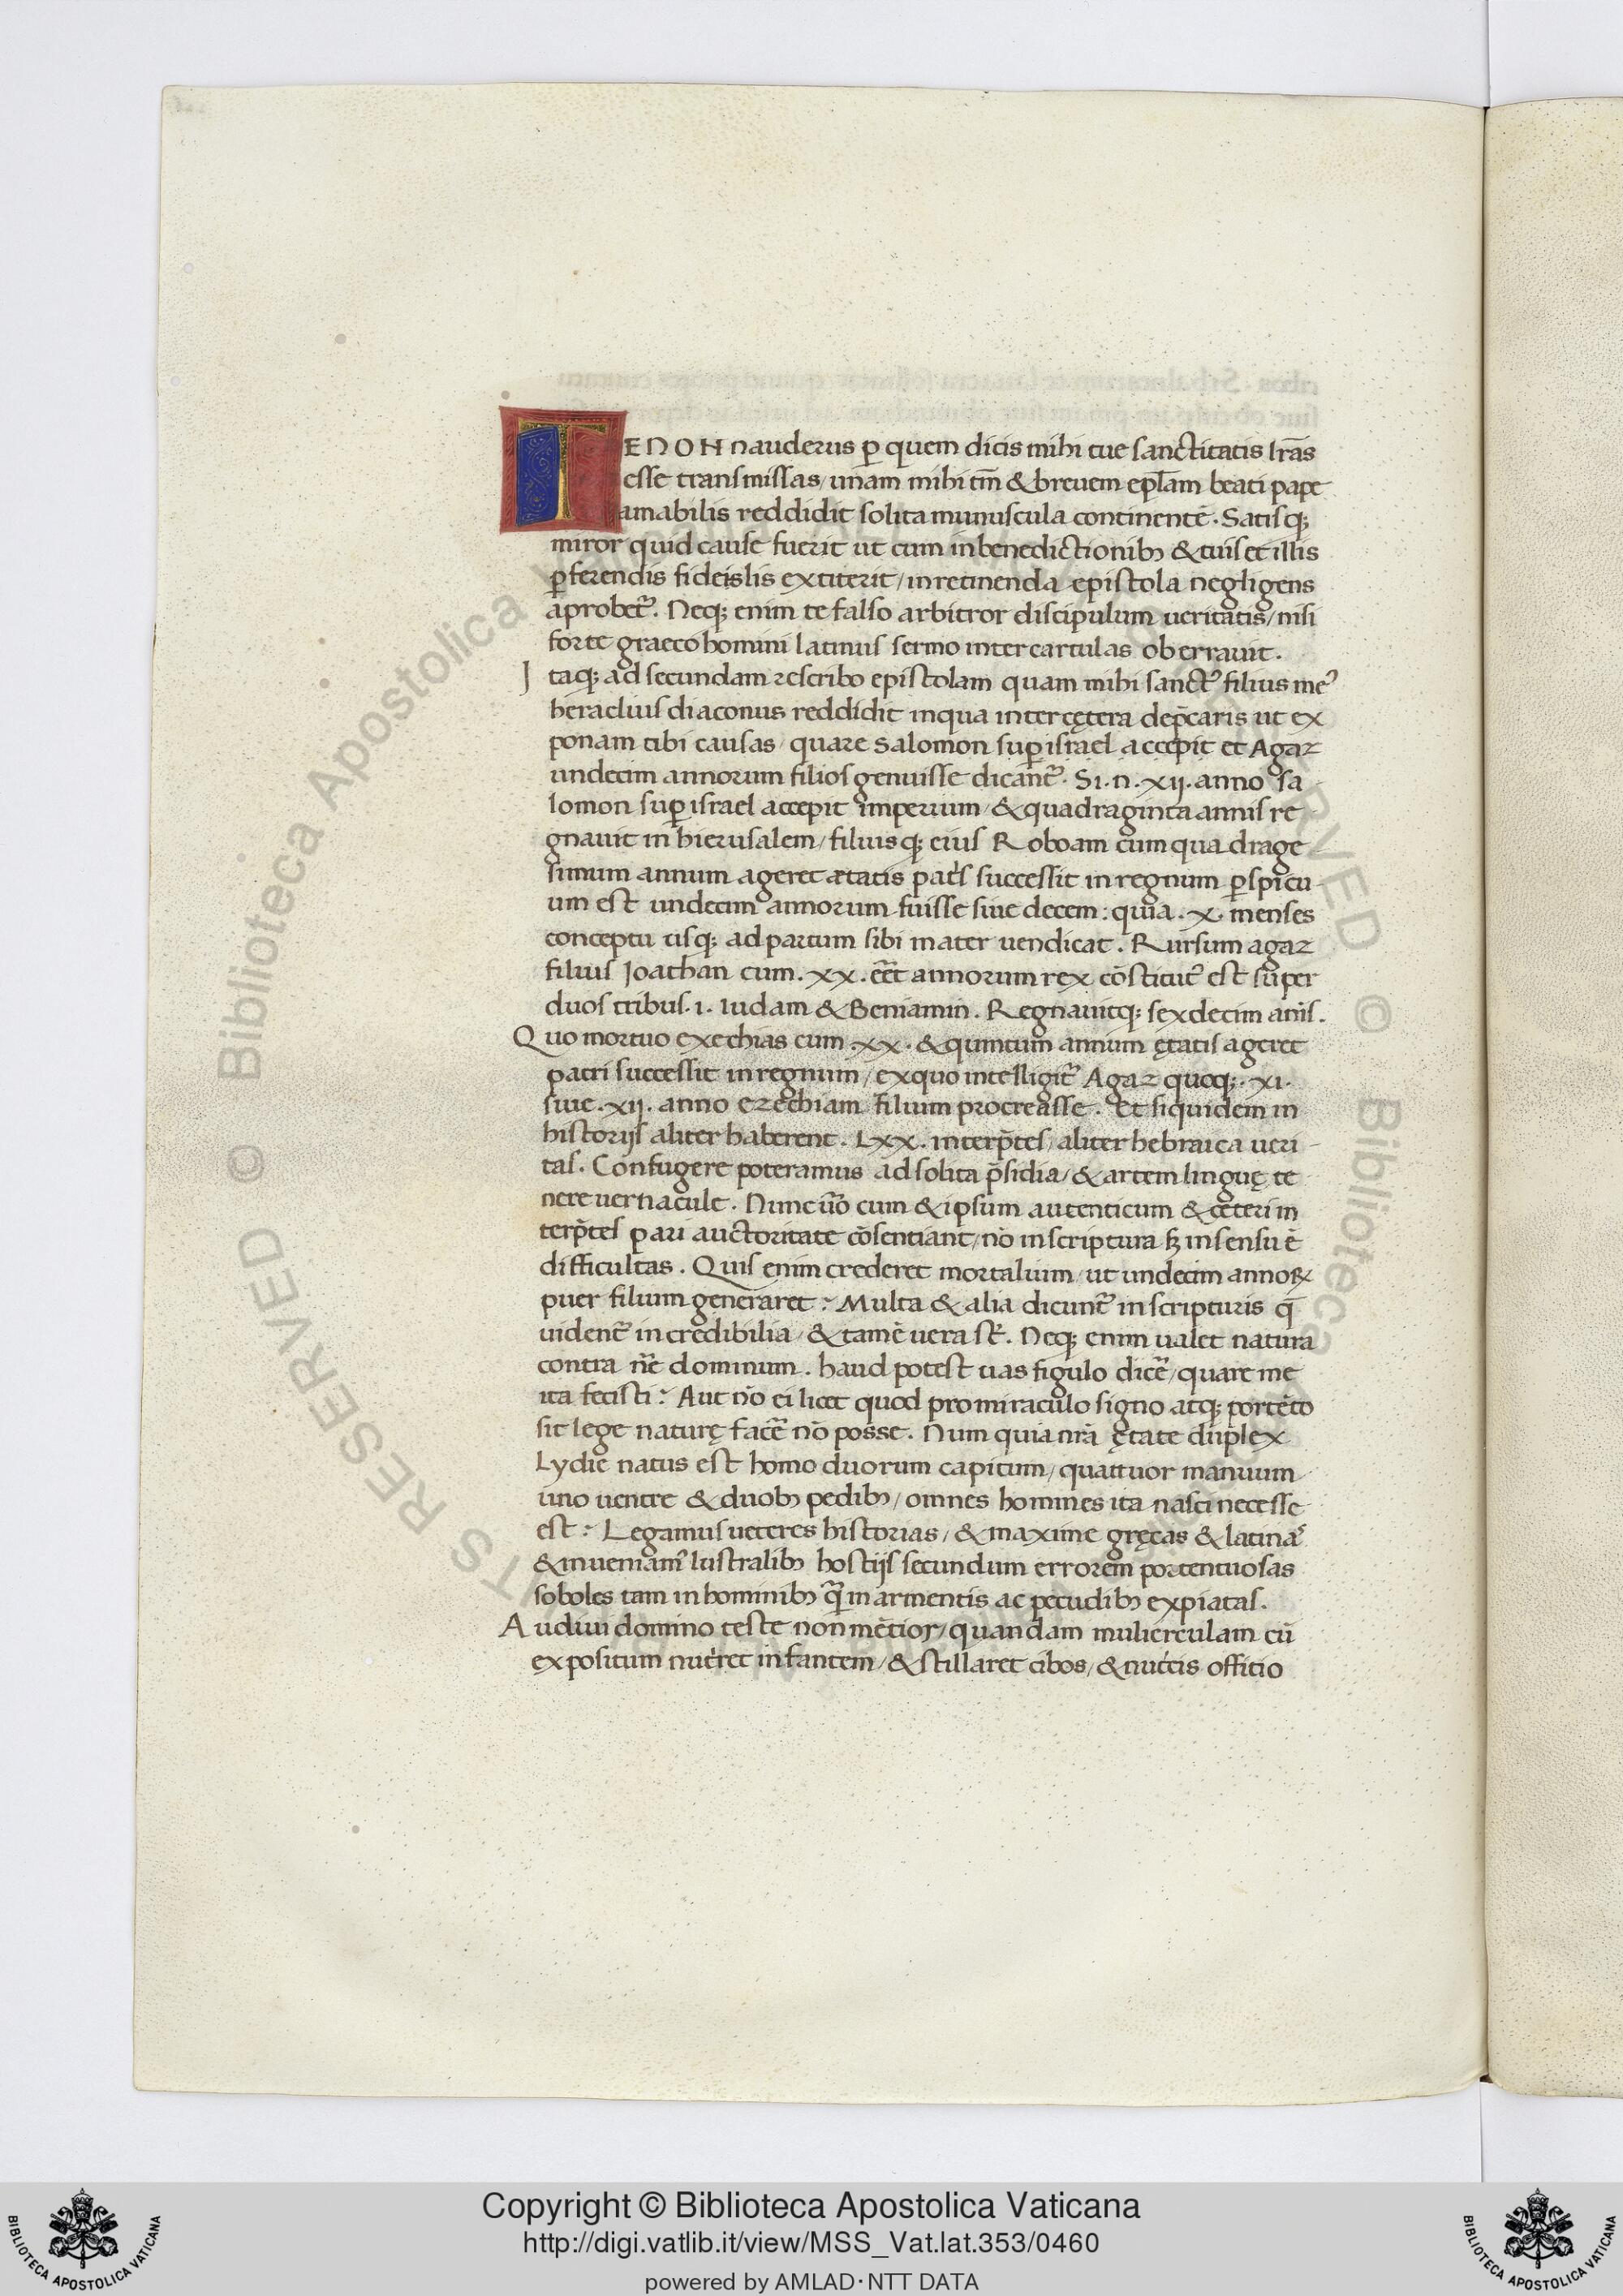 TENON nauderus ꝑ quem dicis mihi tue sanctitatis lr̃as
esse transmissas/ unam mihi tm̃ & breuem epl̃am beati pape
amabilis reddidit solita munuscula continentē. Satisq;
miror quid cause fuerit ut cum in benedictionibꝫ & tuis et illis
ꝑferendis fideislis extiterit/ in retinenda epistola negligens
aprobet᷑. Neq; enim te falso arbitror discipulum ueritatis/ nisi
forte graeco homini latinus sermo inter cartulas oberrauit.
Itaq; ad secundam rescribo epistolam quam mihi sanctꝰ filius meꝰ
heraclius diaconus reddidit in qua inter cętera dep̃caris ut ex
ponam tibi causas/ quare salomon suꝑ israel accepit et Agaz
undecim annorum filios genuisse dicant᷑. Si .n. xij. anno sa
lomon suꝑ israel accepit imperium/ & quadraginta annis re
gnauit in hierusalem/ filiusq; eius Roboam cum quadrage
simum annum ageret ætatis pat̾s successit in regnum ꝑspicu
um est undecim annorum fuisse siue decem: quia .x. menses
conceptu usq; ad partum sibi mater uendicat. Rursum agaz
filius Joathan cum .xx. eēt annorum rex cōstitutꝰ est super
duos tribus .i. Iudam & Beniamin. Regnauitq; sexdecim an̄is.
Quo mortuo exechias cum .xx. & quintum annum ętatis ageret
patri successit in regnum/ ex quo intelligit᷑ Agaz quoq; .xi.
siue .xij. anno ezechiam filium procreasse. Et siquidem in
historijs aliter haberent. Lxx. interp̃tes/ aliter hebraica ueri-
tas. Confugere poteramus ad solita p̃sidia/ & artem linguę te
nere uernacule. Nunc ũo cum & ipsum autenticum & ceteri in
terp̃tes pari auctoritate cōsentiant/ nō in scriptura sꝫ in sensu ē
difficultas. Quis enim crederet mortalium/ ut undecim annoꝝ
puer filium generaret? Multa & alia dicunt᷑ in scripturis q̄
uident᷑ incredibilia/ & tamē uera st̾. Neq; enim ualet natura
contra nr̃e dominum. haud potest uas figulo dicẽ/ quare me
ita fecisti? Aut nō ei licet quod pro miraculo signo atq; portēto
sit lege naturę facẽ nō posse. Num quia nr̃a ętate duplex
Lydie natus est homo duorum capitum/ quattuor manuum
uno uentre & duobꝫ pedibꝫ/ omnes homines ita nasci necesse
est? Legamus ueteres historias/ & maxime gręcas & latinaˢ
& inueniamꝰ lustralibꝫ hostijs secundum errorem portentuosas
soboles tam in hominibꝫ q̃ in armentis ac pecudibꝫ expiatas.
Audiui domino teste non mētior/ quandam mulierculam cū
expositum nut̾ret infantem/ & stillaret cibos/ & nut̾cis offitio
Copyright © Biblioteca Apostolica Vaticana
http://digi.vatlib.it/view/MSS_Vat.lat.353/0460
powered by AMLAD·NTT DATA